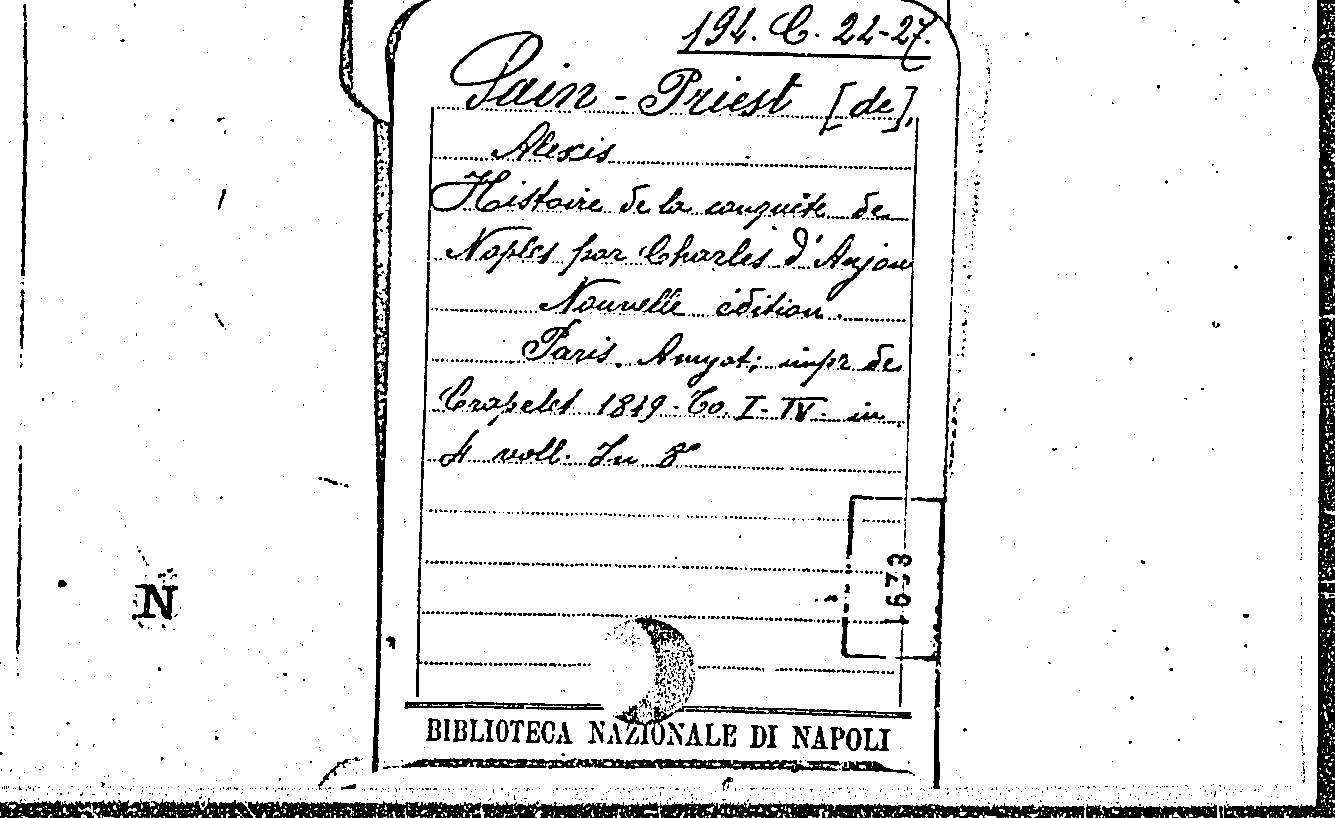 194. C. 24-27.
Sain-Priest [de],
Alexis
Histoire de la conquête de
Naples par Charles d'Anjou
Nouvelle édition.
Paris. Amyot; impr de
Crapelet 1849-To. I-IV. in
4 voll. In 8°
1673
N
BIBLIOTECA NAZIONALE DI NAPOLI